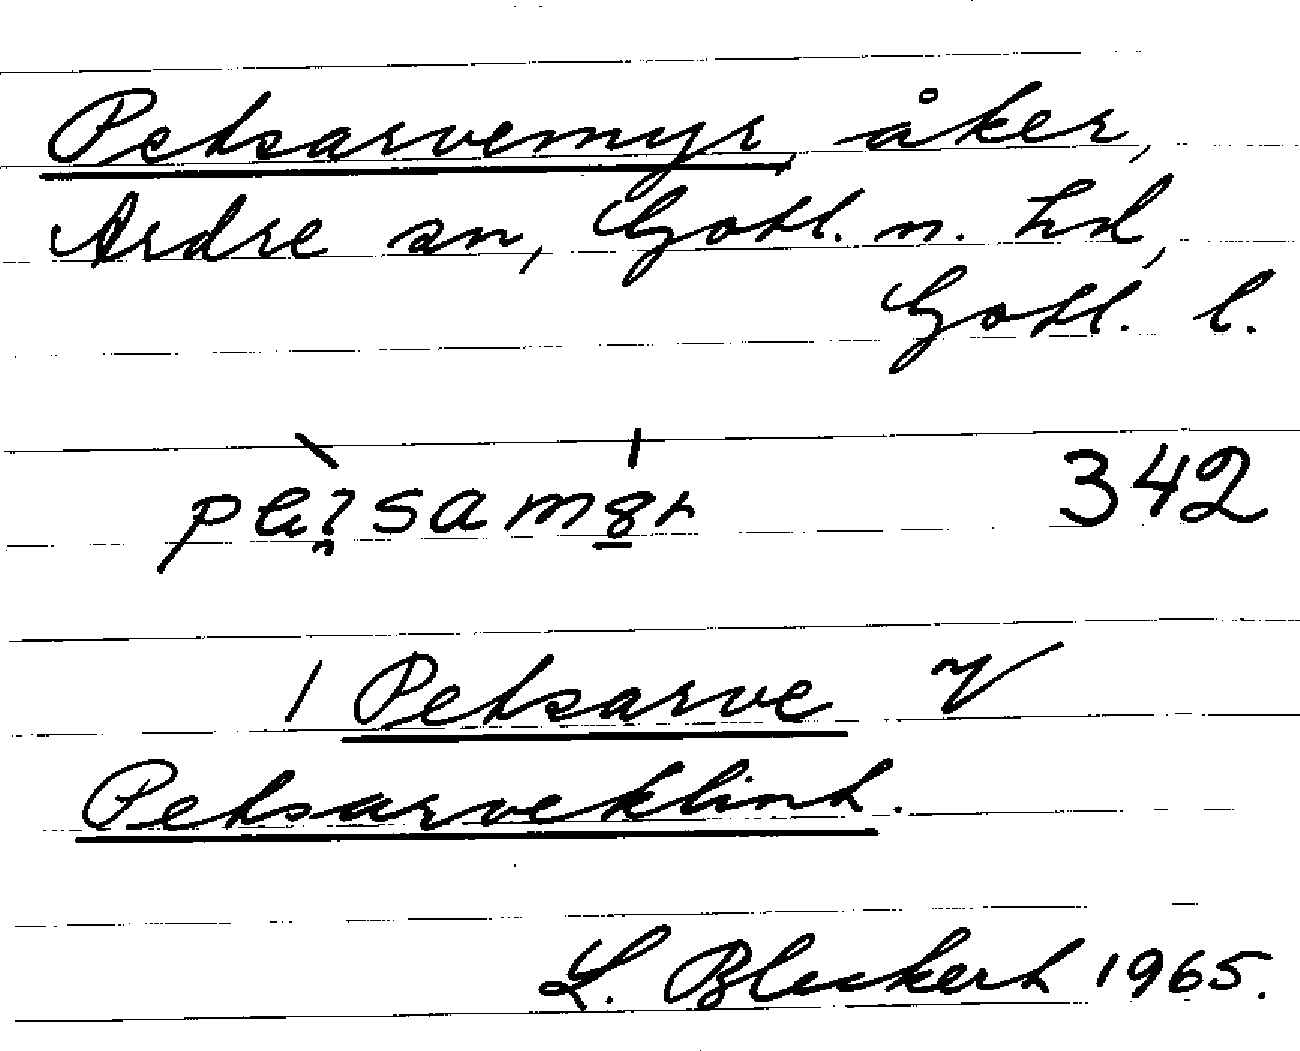 Petsarvemyr, åker,
Ardre sn, Gotl. n. hd,
Gotl. l.
342
/ Petsarve
Petsarveklint.
L. Bleckert 1965.